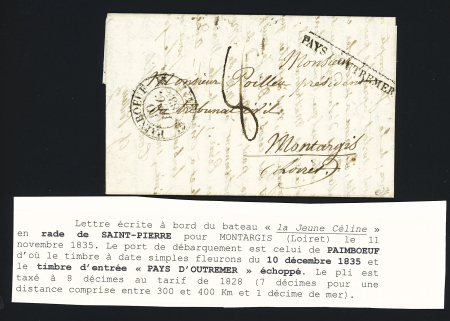 PAYS D'OUTREMER
Monsieur
Monsieur Poillet président
du tribunal civil
Montargis
(Loiret)
8
PAIMBOEUF
Lettre écrite à bord du bateau « la Jeune Céline »
en rade de SAINT-PIERRE pour MONTARGIS (Loiret) le 11
novembre 1835. Le port de débarquement est celui de PAIMBOEUF
d'où le timbre à date simples fleurons du 10 décembre 1835 et
le timbre d'entrée « PAYS D'OUTREMER » échoppé. Le pli est
taxé à 8 décimes au tarif de 1828 (7 décimes pour une
distance comprise entre 300 et 400 Km et 1 décime de mer).